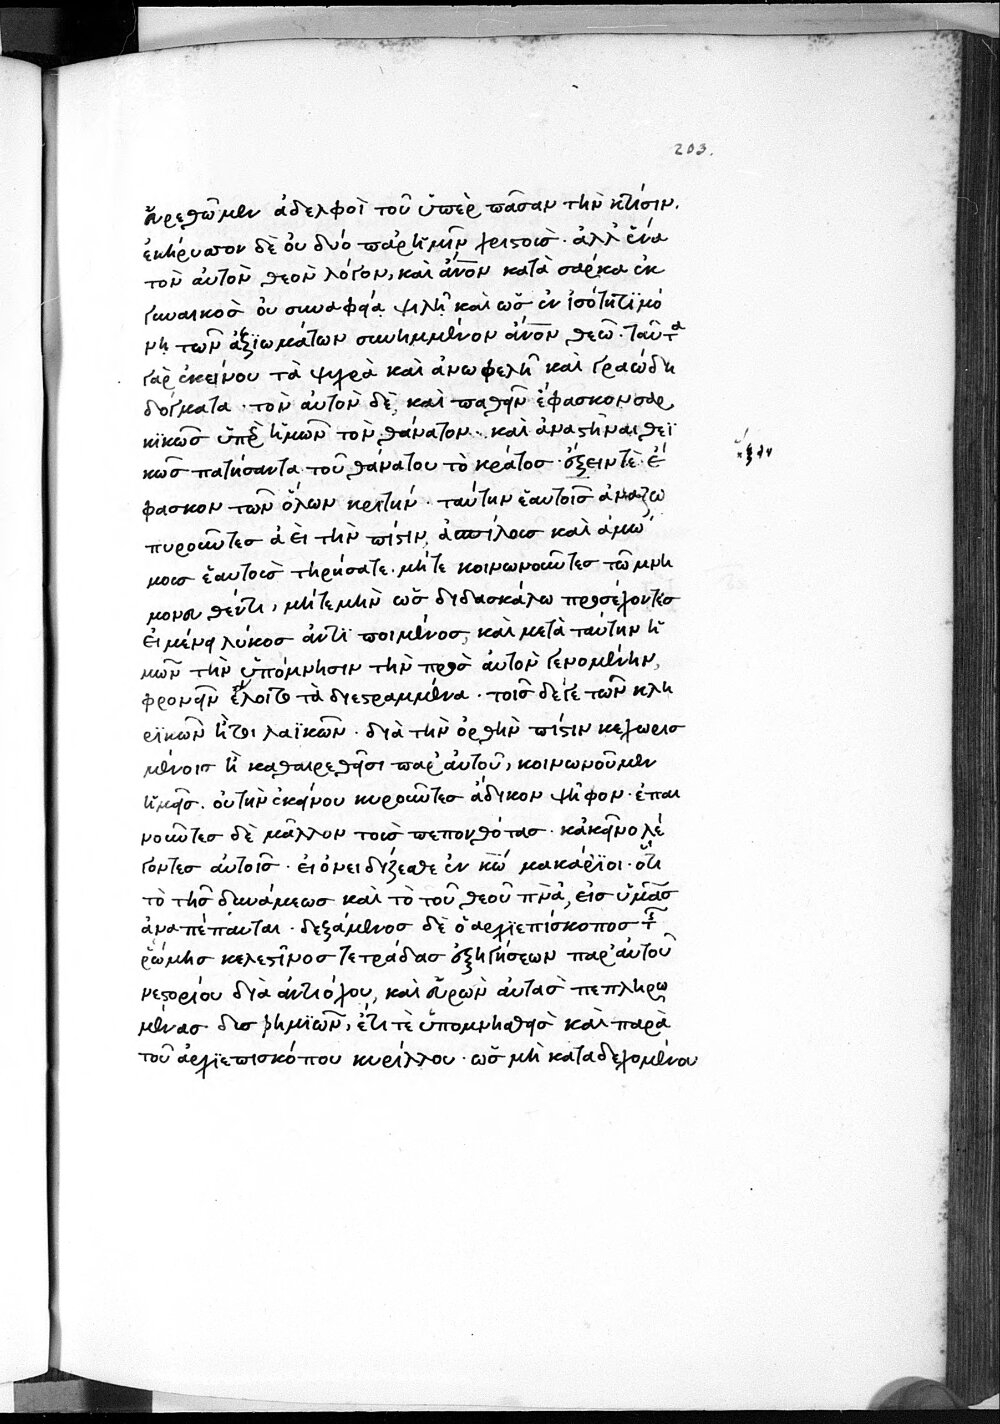 203.
εὑρεθῶμεν ἀδελφοὶ τοῦ ὑπὲρ πᾶσαν τὴν κτίσιν.
ἐκήρυττον δὲ οὐ δύο παρ' ἡμῖν χριστοὺς · ἀλλ' ἕνα
τὸν αὐτὸν θεὸν λόγον, καὶ ἄνον κατὰ σάρκα ἐκ
γυναικὸς οὐ συναφεία ψιλῆ καὶ ὡς ἐν ἰσότητι μό
νη τῶν ἀξιωμάτων συνημμένον ἄνον θεῶ · ταῦτα
γὰρ ἐκείνου τὰ ψυχρὰ καὶ ἀνωφελῆ καὶ γραώδη
δόγματα · τὸν αὐτὸν δὲ, καὶ παθεῖν ἔφασκον σαρ
κϊκῶς ὑπὲρ ἡμῶν τὸν θάνατον · καὶ ἀναστῆναι θεϊ
κῶς πατήσαντα τοῦ θάνατου τὸ κράτος · ἥξειν τὲ ἔ
φασκον τῶν ὅλων κριτήν · ταύτην ἑαυτοῖς ἀναζω
πυροῦντες ἀεὶ τὴν πίστιν, ἀσπίλους καὶ ἀμώ
μους ἑαυτοὺς τηρήσατε · μήτε κοινωνοῦντες τῶ μνη
μονευθέντι, μήτε μὴν ὡς διδασκάλω προσέχοντες
εἰ μένει λύκος ἀντὶ ποιμένος, καὶ μετὰ ταύτην ἡ
μῶν τὴν ὑπόμνησιν τὴν πρὸς αὐτὸν γενομένην,
φρονεῖν ἕλοιτο τὰ διεστραμμένα · τοῖς δέ γε τῶν κλη
ρϊκῶν ἤτοι λαϊκῶν · διὰ τὴν ὀρθὴν πίστιν κεχωρισ
μένοις ἢ καθαιρεθεῖσι παρ' αὐτοῦ, κοινωνοῦμεν
ἡμεῖς · οὐ τὴν ἐκείνου κυροῦντες ἄδικον ψῆφον · ἐπαι
νοῦντες δὲ μᾶλλον τοὺς πεπονθότας · κἀκεῖνο λέ
γοντες αὐτοῖς · εἰ ὀνειδίζεσθε ἐν κω μακάριοι · ὅτι
τὸ τῆς δυνάμεως καὶ τὸ τοῦ θεοῦ πνα, εἰς ὑμᾶς
ἀναπέπαυται · δεξάμενος δὲ ὁ ἀρχϊεπίσκοπος τῆς
ῥώμης κελεστῖνος τετράδας ἐξηγήσεων παρ' αὐτοῦ
νεστορίου διὰ ἀντιόχου, καὶ εὑρὼν αὐτὰς πεπληρω
μένας δυσφημϊῶν, ἔτι τὲ ὑπομνησθεὶς καὶ παρὰ
τοῦ ἀρχϊεπισκόπου κυρίλλου · ὡς μὴ καταδεχομένου